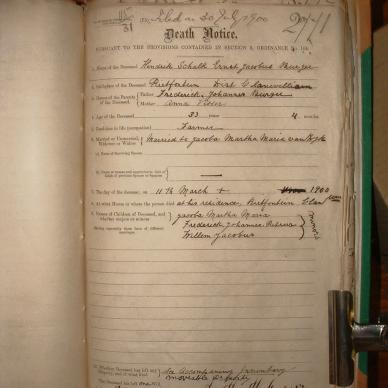 31
Filed on 30 July 1900
Death Notice.
PURSUANT TO THE PROVISIONS CONTAINED IN SECTION 9, ORDINANCE No. 104.
1. Name of the Deceased Hendrik Schalk Ernst Jacobus Burger
2. Birthplace of the Deceased Rietfontein Dist Clanwilliam
3. Names of the Parents of the Deceased Father Frederick Johannes Burger
Mother Anna
4. Age of the Deceased 33 years 4 months
5. Condition in life (occupation) Farmer
6. Married or Unmarried, Widower or Widow Married to Jacoba Martha Maria van Wyk
(a) Name of Surviving Spouse
7. The day of the decease, on 11th March 1900
8. At what House or where the person died at his residence, Rietfontein Clan
9. Names of Children of Deceased, and whether majors or minors Jacoba Martha Maria
Frederick Johannes
Willem Jacobus
minors
10. Whether Deceased has left any Property, and of what kind see accompanying Inventory
movable
The Deceased has left